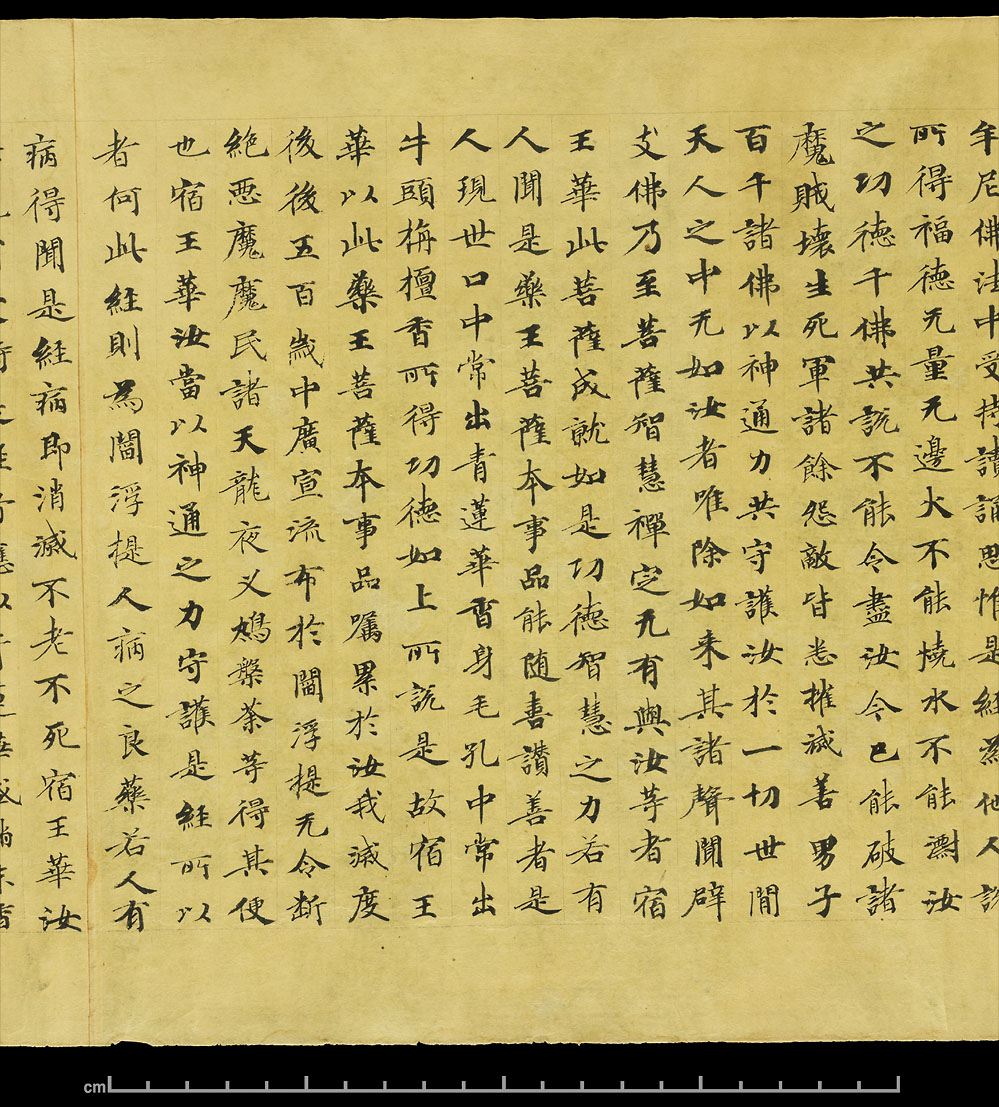 牟尼佛法中受持讀誦思惟是經為他人說
所得福德无量无邊火不能燒水不能漂汝
之功德千佛共說不能令盡汝今已能破諸
魔賊壞生死軍諸餘怨敵皆悉摧滅善男子
百千諸佛以神通力共守護汝於一切世間
天人之中无如汝者唯除如来其諸聲聞辟
支佛乃至菩薩智慧禪定无有與汝等者宿
王華此菩薩成就如是功德智慧之力若有
人聞是藥王菩薩本事品能随喜讃善者是
人現世口中常出青蓮華香身毛孔中常出
牛頭栴檀香所得功德如上所說是故宿王
華以此藥王菩薩本事品囑累於汝我滅度
後後五百歲中廣宣流布於閻浮提无令斷
絕惡魔魔民諸天龍夜叉鳩槃荼等得其便
也宿王華汝當以神通之力守護是經所以
者何此經則為閻浮提人病之良藥若人有
病得聞是經病即消滅不老不死宿王華汝
cm